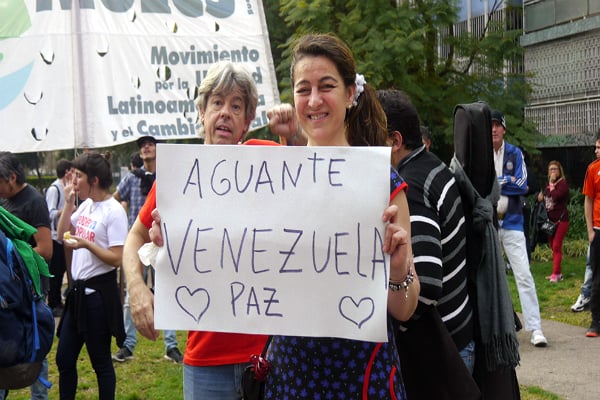 Movimiento
por la U
Latinoam
y el Cambi
AGUANTE
VENEZUELA
PAZ